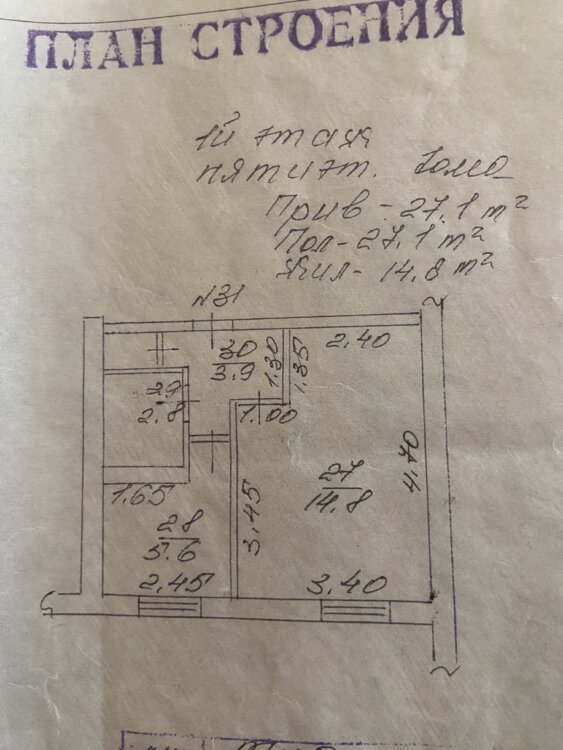 ПЛАН СТРОЕНИЯ
1й этаж
пятиэт. дома
Прив - 27.1 m²
Пол - 27.1 m²
Жил - 14.8 m²
N31
30
3.9
1.30
1.35
2.40
29
2.8
1.00
27
14.8
4.70
1.65
3.45
28
5.6
2.45
3.40